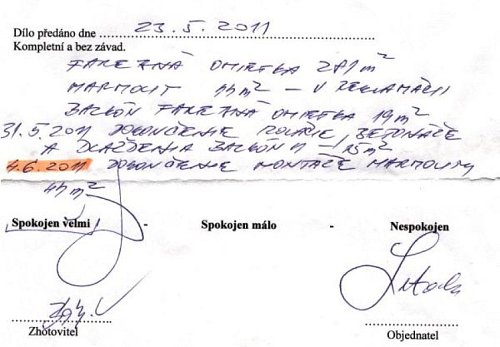 Dílo předáno dne 23.5.2011
Kompletní a bez závad.
FAREBNÁ OMIETKA 281 m²
MARMOLIT 44 m² – V REKLAMÁCII
BALKÓN FAREBNÁ OMIETKA 19 m²
31.5.2011 DOKONČENIE BETONÁŽE
A DLAŽDENIA BALKÓNU 15 m²
4.6.2011 DOKONČENIE MONTÁŽE MARMOLITU
44 m²
Spokojen velmi - Spokojen málo - Nespokojen
Zhotovitel Objednatel